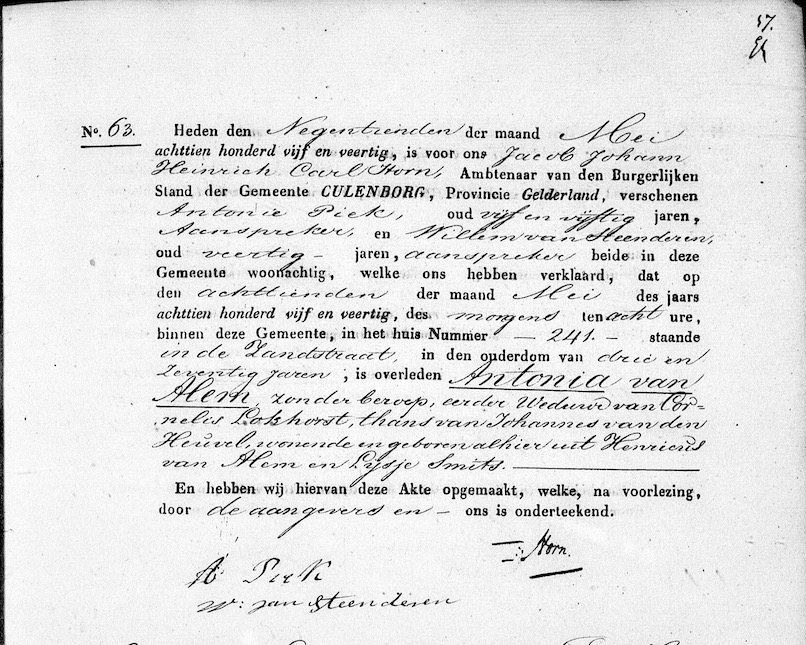 57.
No. 63. Heden den Negentienden der maand Mei
achttien honderd vijf en veertig, is voor ons Jacob Johann
Heinrich Carl Horn, Ambtenaar van den Burgerlijken
Stand der Gemeente CULENBORG, Provincie Gelderland, verschenen
Antonie Piek, oud vijf en vijftig jaren,
Aanspreker, en Willem van Steenderen,
oud veertig - jaren, aanspreker beide in deze
Gemeente woonachtig, welke ons hebben verklaard, dat op
den achttienden der maand Mei des jaars
achttien honderd vijf en veertig, des morgens ten acht ure,
binnen deze Gemeente, in het huis Nummer - 241. - staande
in de Zandstraat, in den ouderdom van drie en
Zeventig Jaren, is overleden Antonia van
Alem, zonder beroep, eerder Weduwe van Cor=
nelis Lokhorst, thans van Johannes van den
Heuvel, wonende en geboren alhier uit Henricus
van Alem en Lijsje Smits.
En hebben wij hiervan deze Akte opgemaakt, welke, na voorlezing,
door de aangevers en - ons is onderteekend.
Horn.
A Piek
W: van Steenderen